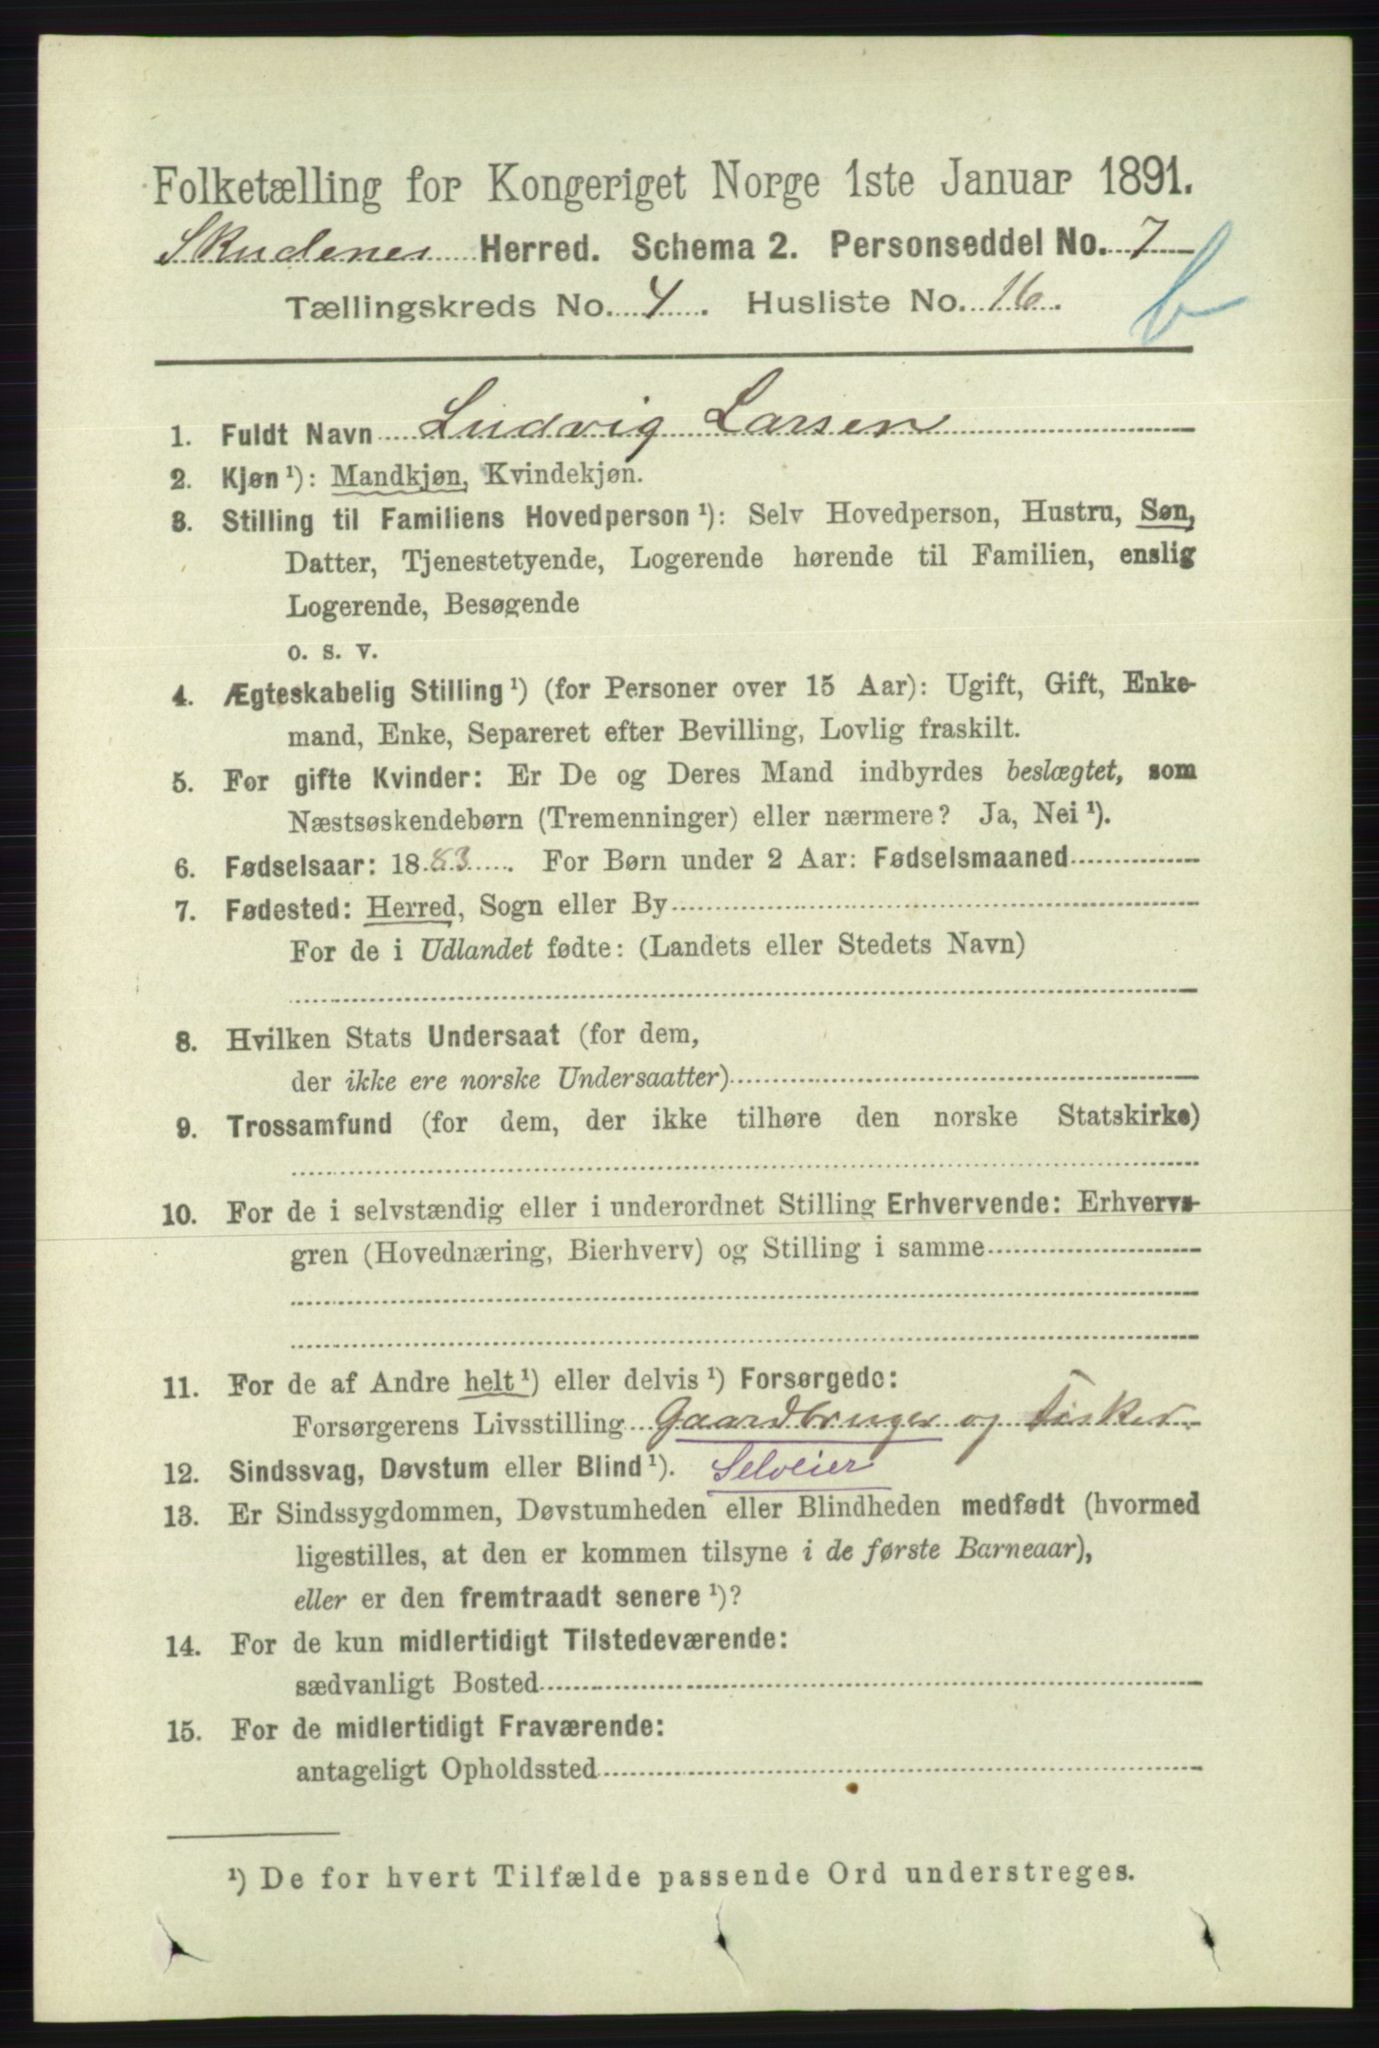 Folketælling for Kongeriget Norge 1ste Januar 1891.
Skudenes Herred. Schema 2. Personseddel No. 7
Tællingskreds No. 4. Husliste No. 16.
b
1. Fuldt Navn Ludvig Larsen
2. Kjøn ¹): Mandkjøn, Kvindekjøn.
3. Stilling til Familiens Hovedperson ¹): Selv Hovedperson, Hustru, Søn,
Datter, Tjenestetyende, Logerende hørende til Familien, enslig
Logerende, Besøgende
o. s. v.
4. Ægteskabelig Stilling ¹) (for Personer over 15 Aar): Ugift, Gift, Enke-
mand, Enke, Separeret efter Bevilling, Lovlig fraskilt.
5. For gifte Kvinder: Er De og Deres Mand indbyrdes beslægtet, som
Næstsøskendebørn (Tremenninger) eller nærmere? Ja, Nei ¹).
6. Fødselsaar: 1883. For Børn under 2 Aar: Fødselsmaaned
7. Fødested: Herred, Sogn eller By
For de i Udlandet fødte: (Landets eller Stedets Navn)
8. Hvilken Stats Undersaat (for dem,
der ikke ere norske Undersaatter)
9. Trossamfund (for dem, der ikke tilhøre den norske Statskirke)
10. For de i selvstændig eller i underordnet Stilling Erhvervende: Erhvervs-
gren (Hovednæring, Bierhverv) og Stilling i samme
11. For de af Andre helt ¹) eller delvis ¹) Forsørgede:
Forsørgerens Livsstilling Gaardbruger og Fisker
12. Sindssvag, Døvstum eller Blind ¹). Selveier
13. Er Sindssygdommen, Døvstumheden eller Blindheden medfødt (hvormed
ligestilles, at den er kommen tilsyne i de første Barneaar),
eller er den fremtraadt senere ¹)?
14. For de kun midlertidigt Tilstedeværende:
sædvanligt Bosted
15. For de midlertidigt Fraværende:
antageligt Opholdssted
¹) De for hvert Tilfælde passende Ord understreges.